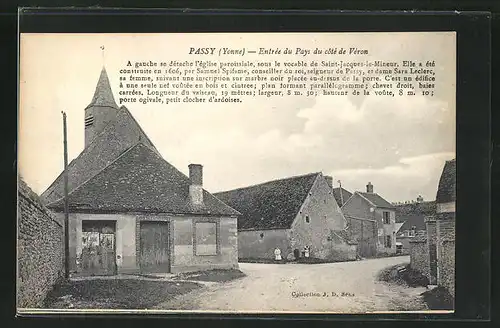 PASSY (Yonne) — Entrée du Pays du côté de Véron
A gauche se détache l'église paroissiale, sous le vocable de Saint-Jacques-le-Mineur. Elle a été
construite en 1606, par Samuel Spifame, conseiller du roi, seigneur de Passy, et dame Sara Leclerc,
sa femme, suivant une inscription sur marbre noir placée au-dessus de la porte. C'est un édifice
à une seule nef voûtée en bois et cintrée; plan formant parallélogramme; chevet droit, baies
carrées. Longueur du vaisseau, 19 mètres; largeur, 8 m. 30; hauteur de la voûte, 8 m. 10;
porte ogivale, petit clocher d'ardoises.
Collection J. D. Sens